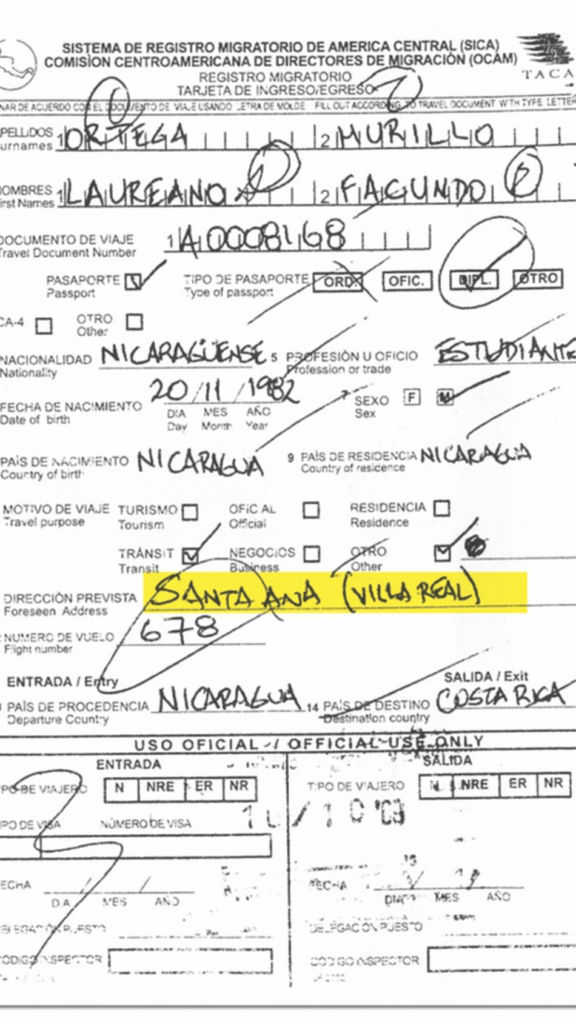 SISTEMA DE REGISTRO MIGRATORIO DE AMERICA CENTRAL (SICA)
COMISIÓN CENTROAMERICANA DE DIRECTORES DE MIGRACIÓN (OCAM)
TACA
REGISTRO MIGRATORIO
TARJETA DE INGRESO/EGRESO
NAR DE ACUERDO CON EL DOCUMENTO DE VIAJE USANDO LETRA DE MOLDE FILL OUT ACCORDING TO TRAVEL DOCUMENT WITH TYPE LETTER
PELLIDOS 1 ORTEGA 2 MURILLO
urnames
NOMBRES 1 LAUREANO 2 FACUNDO
irst Names
DOCUMENTO DE VIAJE 1 A0008168
Travel Document Number
PASAPORTE TIPO DE PASAPORTE ORD. OFIC. DIPL. OTRO
Passport Type of passport
CA-4 OTRO
Other
NACIONALIDAD NICARAGÜENSE 5 PROFESIÓN U OFICIO ESTUDIANTE
Nationality Profession or trade
FECHA DE NACIMIENTO 20/11/1982 7 SEXO F M
Date of birth DIA MES AÑO Sex
Day Month Year
PAÍS DE NACIMIENTO NICARAGUA 9 PAÍS DE RESIDENCIA NICARAGUA
Country of birth Country of residence
MOTIVO DE VIAJE TURISMO OFICIAL RESIDENCIA
Travel purpose Tourism Official Residence
TRÁNSIT NEGOCIOS OTRO
Transit Business Other
DIRECCIÓN PREVISTA SANTA ANA (VILLA REAL)
Foreseen Address
NUMERO DE VUELO 678
Flight number
ENTRADA / Entry SALIDA / Exit
PAÍS DE PROCEDENCIA NICARAGUA 14 PAÍS DE DESTINO COSTA RICA
Departure Country Destination country
USO OFICIAL / OFFICIAL USE ONLY
ENTRADA SALIDA
PO DE VIAJERO N NRE ER NR TIPO DE VIAJERO N NRE ER NR
IPO DE VISA NÚMERO DE VISA
ECHA / / FECHA
DIA MES AÑO DIA MES AÑO
DELEGACIÓN PUESTO DELEGACIÓN PUESTO
CÓDIGO INSPECTOR CÓDIGO INSPECTOR